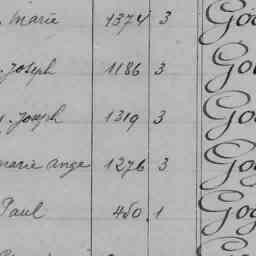 . Marie 1374 3 Go
. Joseph 1186 3 Go
. Joseph 1319 3 Go
marie ange 1276 3 Go
Paul 450 1 Go